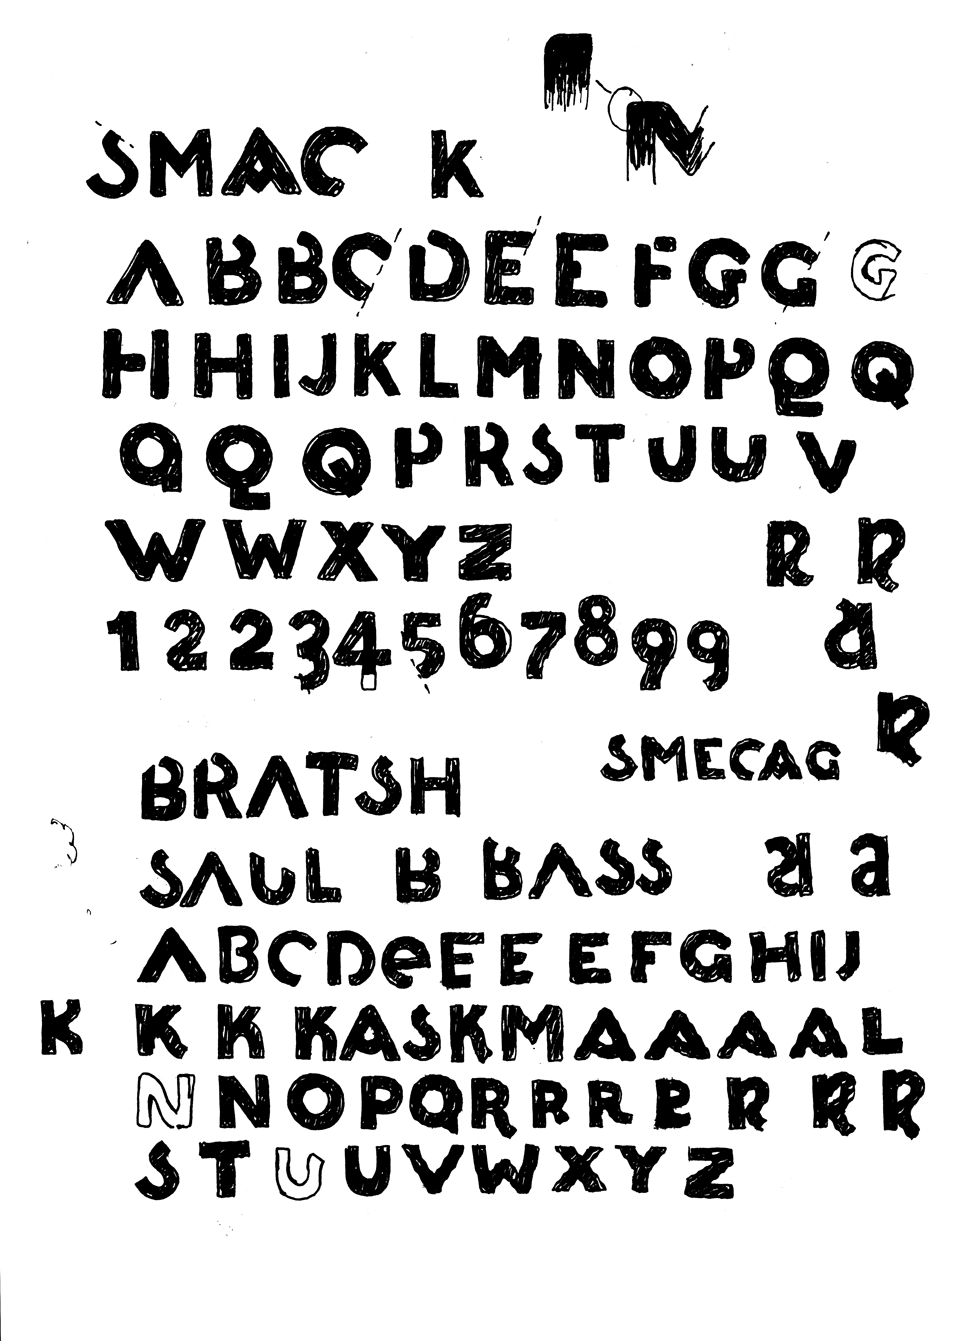 SMAC K
ABBCDEEFGGG
HHIJKLMNOPQQ
QQQPRSTUUV
WWXYZ R R
122345678999 a
R
BRATSH SMECAG
SAUL B BASS a a
ABCDeEEEFGHIJ
K K K KASKMAAAAL
NNOPQRRRRR RR
STUUVWXYZ